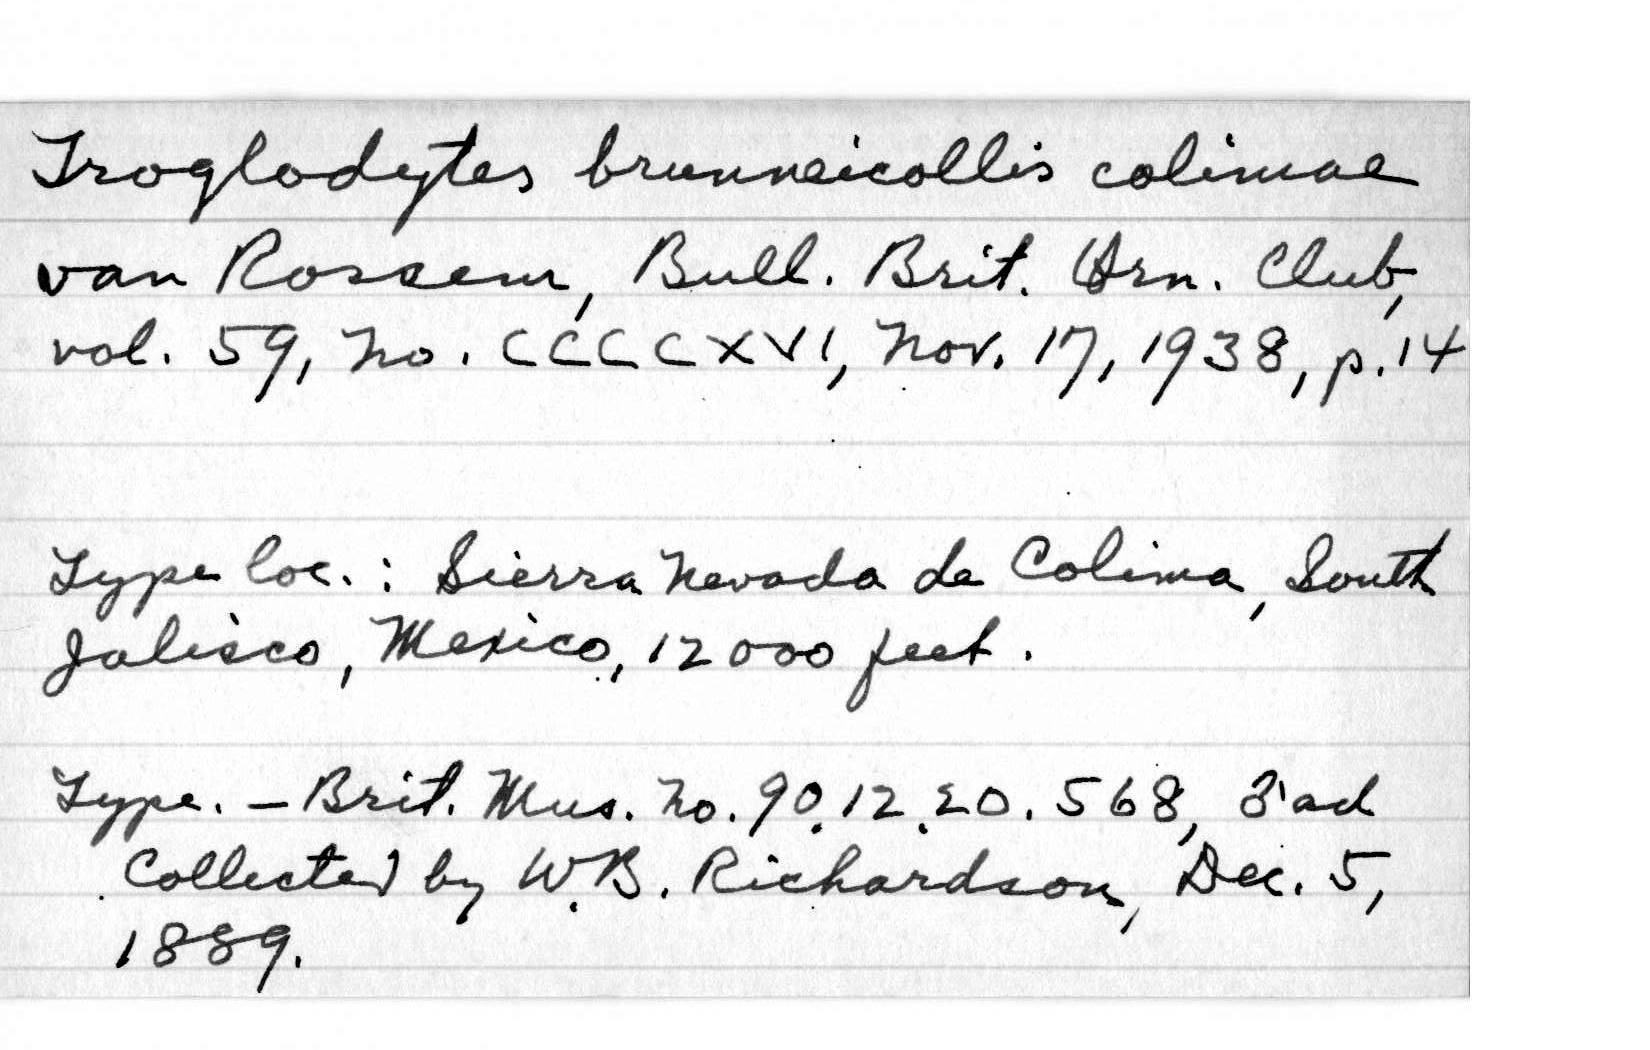 Troglodytes brunneicollis colimae
van Rossem, Bull. Brit. Orn. Club,
vol. 59, no. CCCCXVI, Nov. 17, 1938, p. 14
Type loc. : Sierra Nevada de Colima, South
Jalisco, Mexico, 12000 feet.
Type. – Brit. Mus. no. 90.12.20.568, ♂ ad
Collected by W.B. Richardson, Dec. 5,
1889.